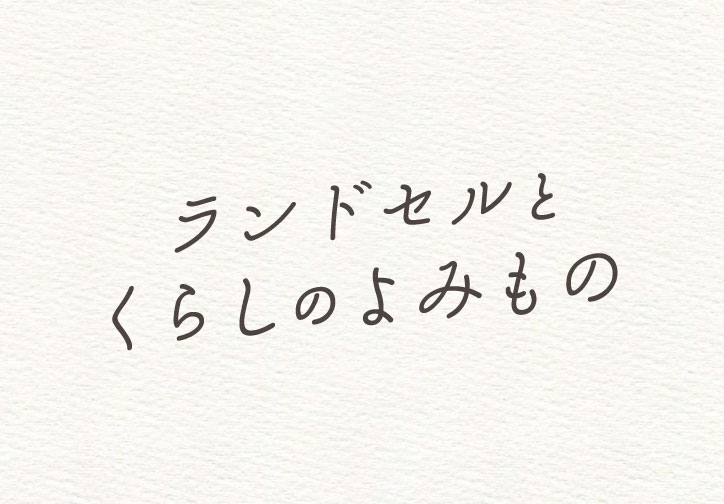 ランドセルと
くらしのよみもの